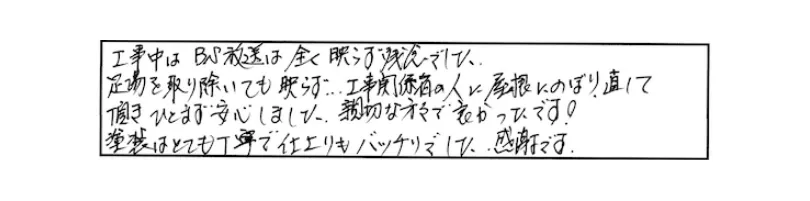 工事中は BS放送は 全く映らず残念でした。
足場を取り除いても 映らず…工事関係者の人に屋根にのぼり直して
頂きひとまず安心しました。親切な方々で良かったです!
塗装はとても丁寧で仕上りもバッチリでした。感謝です。